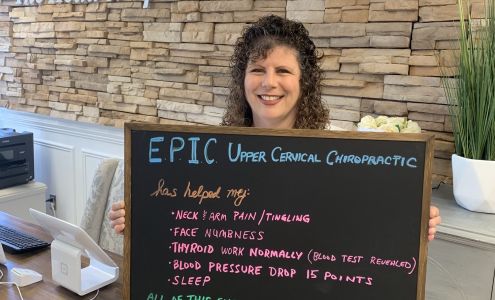 E.P.I.C. UPPER CERVICAL CHIROPRACTIC
has helped my:
• NECK & ARM PAIN/TINGLING
• FACE NUMBNESS
• THYROID WORK NORMALLY (BLOOD TEST REVEALED)
• BLOOD PRESSURE DROP 15 POINTS
• SLEEP
ALL OF THIS